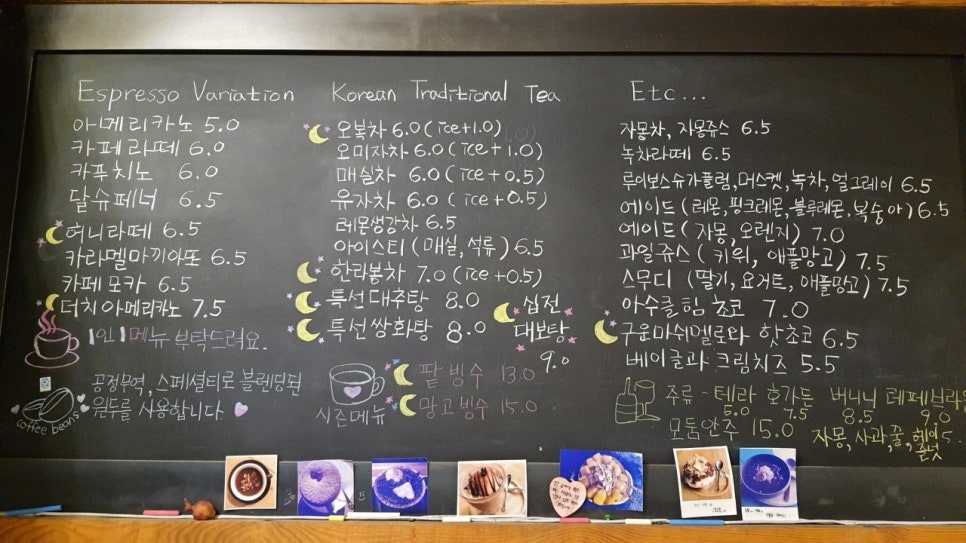 Espresso Variation
아메리카노 5.0
카페라떼 6.0
카푸치노 6.0
달슈페너 6.5
허니라떼 6.5
카라멜마끼아또 6.5
카페모카 6.5
더치아메리카노 7.5
1인1메뉴 부탁드려요.
공정무역, 스페셜티로 블렌딩된
원두를 사용합니다.
coffee beans
Korean Traditional Tea
오복차 6.0 (ice+1.0)
오미자차 6.0 (ice+1.0)
매실차 6.0 (ice+0.5)
유자차 6.0 (ice+0.5)
레몬생강차 6.5
아이스티 (매실, 석류) 6.5
한라봉차 7.0 (ice+0.5)
특선대추탕 8.0
특선쌍화탕 8.0
십전
대보탕
9.0
시즌메뉴
팥빙수 13.0
망고빙수 15.0
Etc...
자몽차, 자몽쥬스 6.5
녹차라떼 6.5
루이보스슈가플럼, 머스켓, 녹차, 얼그레이 6.5
에이드 (레몬, 핑크레몬, 블루레몬, 복숭아) 6.5
에이드 (자몽, 오렌지) 7.0
과일쥬스 (키위, 애플망고) 7.5
스무디 (딸기, 요거트, 애플망고) 7.5
아수클림 초코 7.0
구운마쉬멜로와 핫초코 6.5
베이글과 크림치즈 5.5
주류 - 테라 호가든 버니니 템페브라운
5.0 7.5 8.5 9.0
모둠안주 15.0 자몽, 사과, 꿀,